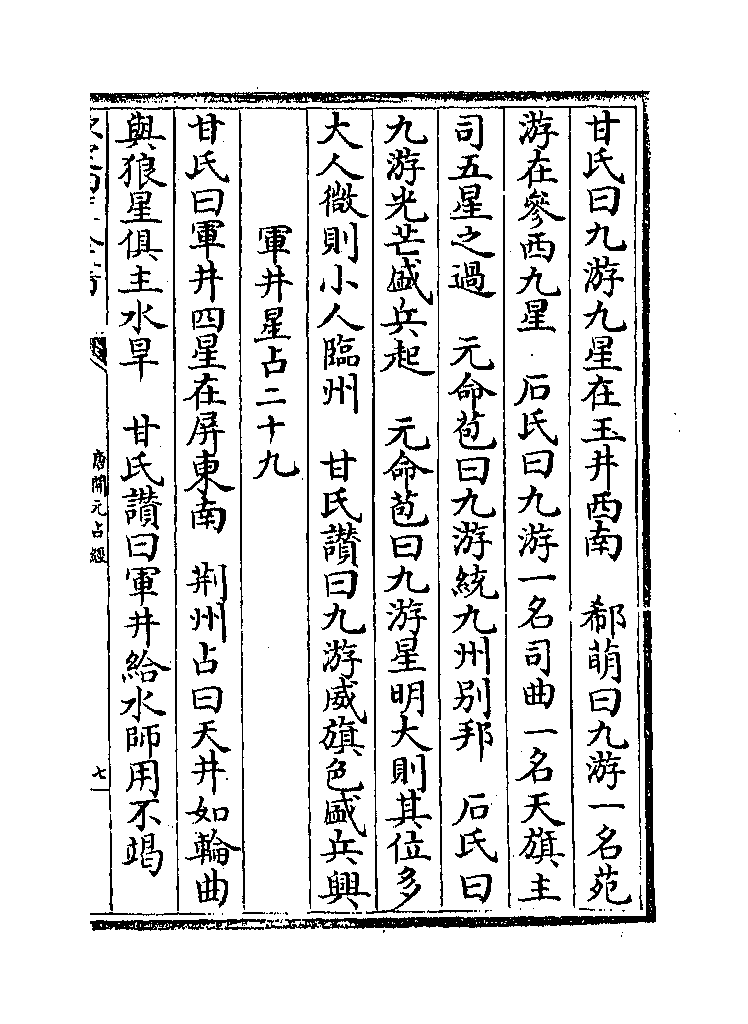 甘氏曰九游九星在玉井西南　郗萌曰九游一名苑
游在參西九星　石氏曰九游一名司曲一名天旗主
司五星之過　元命苞曰九游統九州别邦　石氏曰
九游光芒盛兵起　元命苞曰九游星明大則其位多
大人微則小人臨州　甘氏讃曰九游威旗色盛兵興
軍井星占二十九
甘氏曰軍井四星在屏東南　荆州占曰天井如輪曲
與狼星俱主水旱　甘氏讃曰軍井給水師用不竭
唐開元占經
七